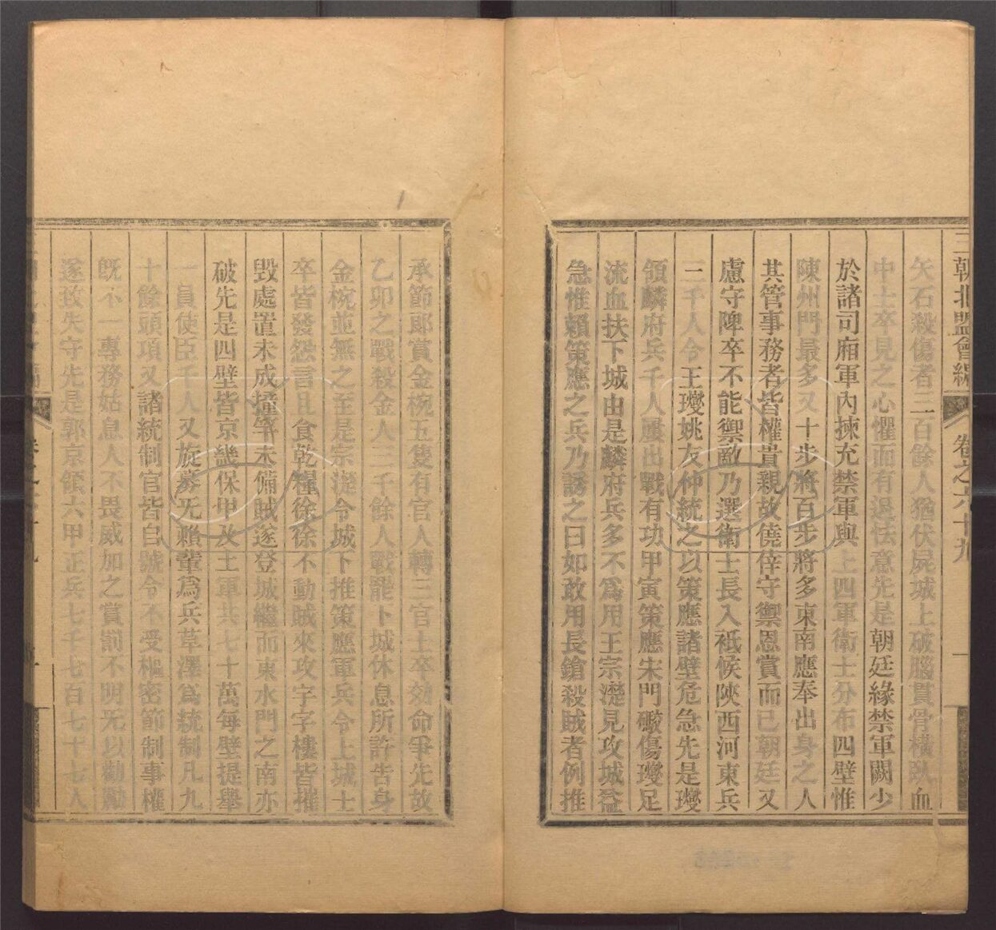 三朝北盟會編 卷之六十九 一
矢石殺傷者三百餘人猶伏屍城上破腦貫骨橫臥血
中士卒見之心懼而有退怯意先是朝廷緣禁軍闕少
於諸司廂軍內揀充禁軍與上四軍衛士分布四壁惟
陳州門最多又十步將百步將多東南應奉出身之人
其管事務者皆權貴親故僥倖守禦恩賞而已朝廷又
慮守陴卒不能禦敵乃選衛士長入祗候陝西河東兵
二千人令王𤫉姚友仲統之以策應諸壁危急先是𤫉
領麟府兵千人屢出戰有功甲寅策應宋門礮傷𤫉足
流血扶下城由是麟府兵多不為用王宗濋見攻城益
急惟賴策應之兵乃誘之曰如敢用長鎗殺賊者例推
承節郎賞金椀五隻有官人轉三官士卒効命爭先故
乙卯之戰殺金人三千餘人戰罷下城休息所許告身
金椀並無之至是宗濋令城下推策應軍兵令上城士
卒皆發怨言且食乾糧徐徐不動賊來攻字字樓皆摧
毀處置未成撞竿未備賊遂登城繼而東水門之南亦
破先是四壁皆京畿保甲及土軍共七十萬每壁提舉
一員使臣千人又旋募无賴輩為兵草澤為統制凡九
十餘頭項又諸統制官皆自號令不受樞密節制事權
既不一專務姑息人不畏威加之賞罰不明无以勸勵
遂致失守先是郭京領六甲正兵七千七百七十七人